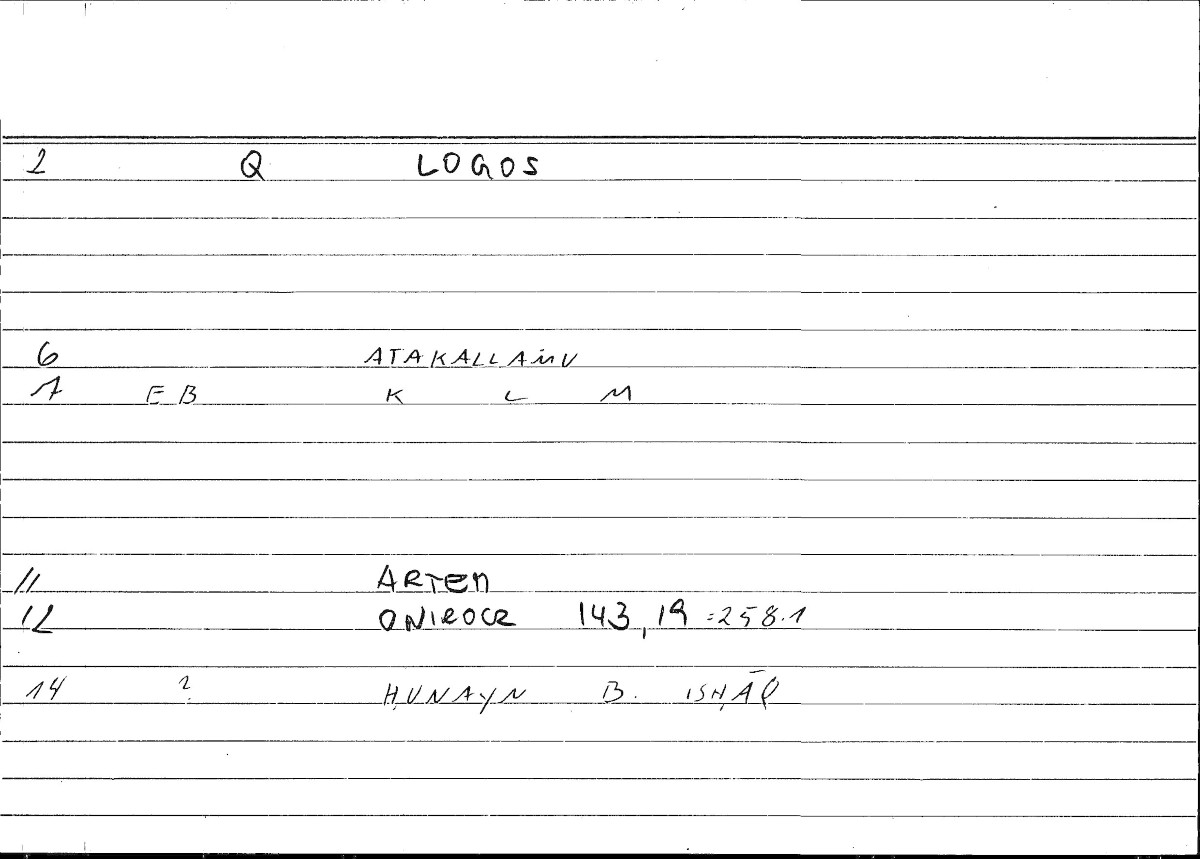 2 Q LOGOS
6 ATAKALLAMU
7 EB K L M
11 ARTEM
12 ONIROCR 143,19 =258.1
14 ? ḤUNAYN B. ISḤĀQ